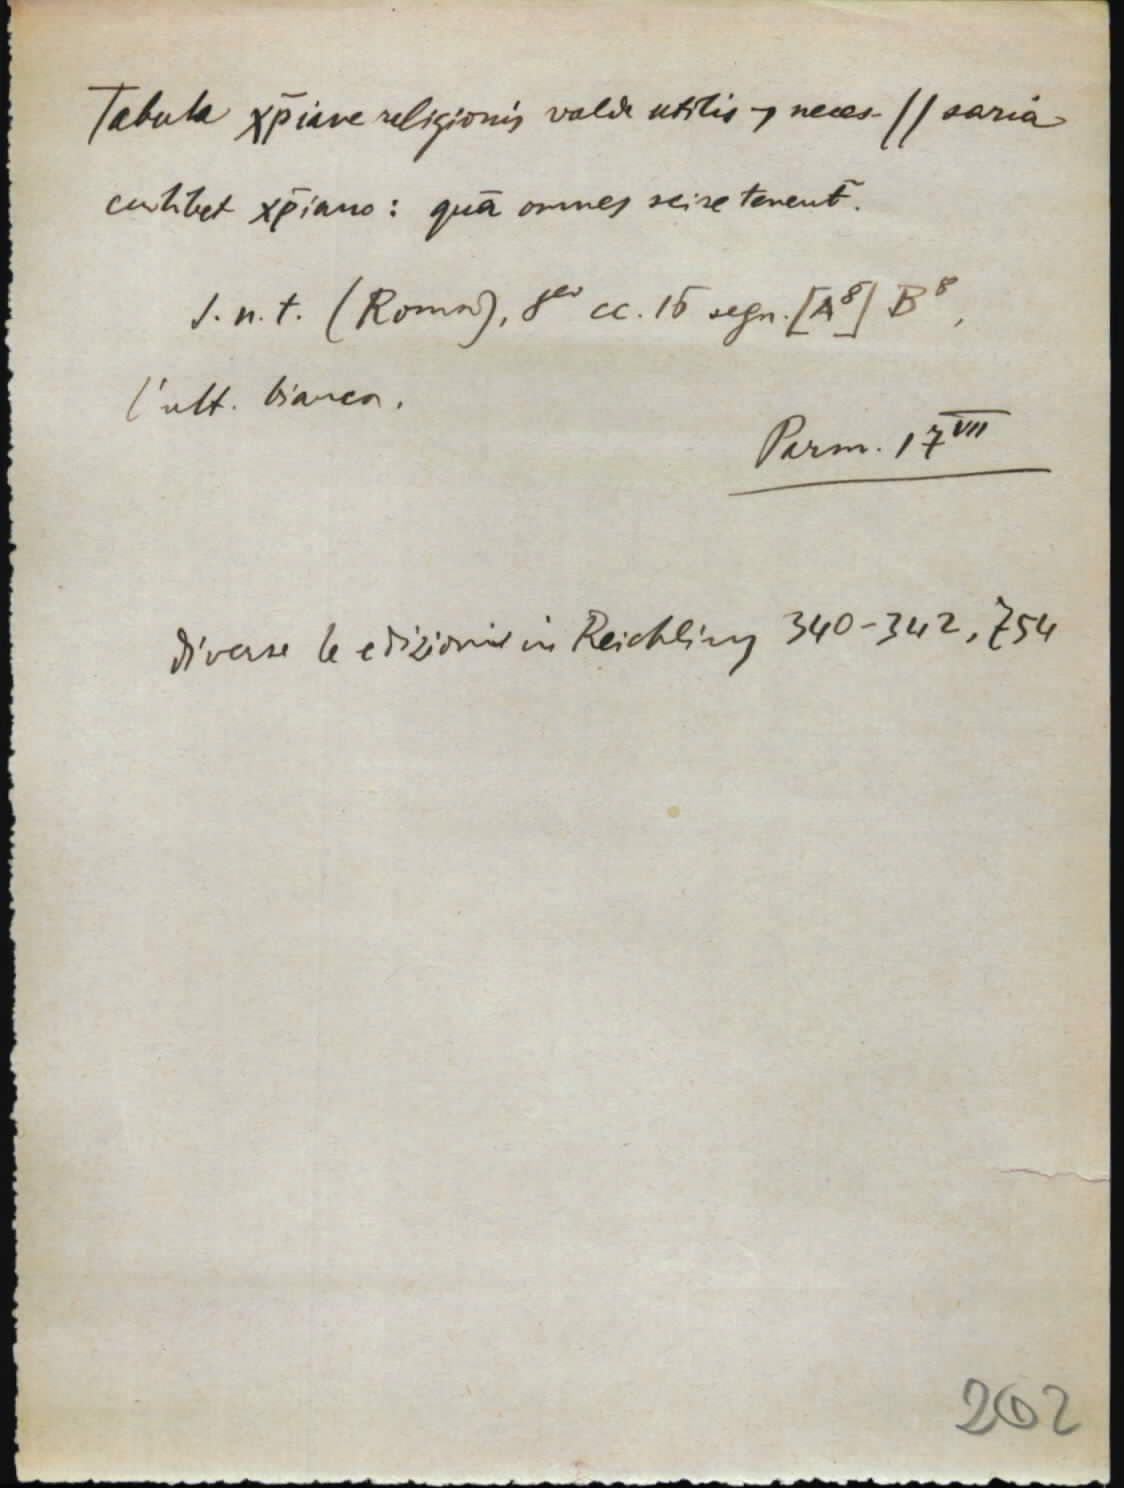 Tabula xp̄iane religionis valde utilis ⁊ neces- // saria
cuilibet xp̄iano: quā omnes scire tenent̄.
S. n. t. (Roma), 8º cc. 16 segn. [A⁸] B⁸,
l'ult. bianca.
Parm. 17^VII
diverse le edizioni in Reichling 340-342, 754
202